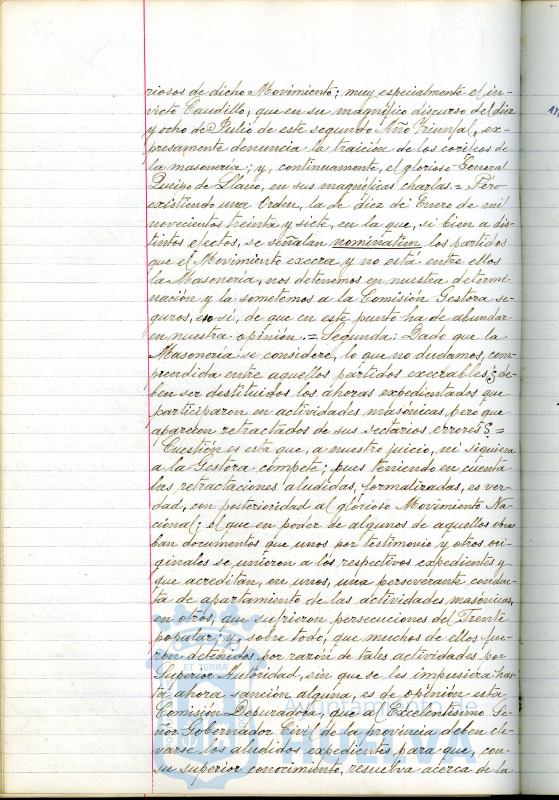 riosos de dicho Movimiento; muy especialmente el in-
victo Caudillo, que en su magnífico discurso del diez
y ocho de Julio de este segundo Año Triunfal, ex-
presamente denuncia la traición de los corifeos de
la masonería; y, continuamente, el glorioso General
Queipo de Llano, en sus magníficas charlas. = Pero
existiendo una Orden, la de diez de Enero de mil
novecientos treinta y siete, en la que, si bien a dis-
tintos efectos, se señalan nominatim los partidos
que el Movimiento execra y no está entre ellos
la Masonería, nos detenemos en nuestra determi-
nación y la sometemos a la Comisión Gestora se-
guros, eso sí, de que en este punto ha de abundar
en nuestra opinión. = Segunda: Dado que la
Masonería se considere, lo que no dudamos, com-
prendida entre aquellos partidos execrables ¿de-
ben ser destituidos los ahoras expedientados que
participaron en actividades masónicas, pero que
aparecen retractados de sus sectarios errores? =
Cuestión es esta que, a nuestro juicio, ni siquiera
a la Gestora compete; pues teniendo en cuenta
las retractaciones aludidas, formalizadas, es ver-
dad, con posterioridad al glorioso Movimiento Na-
cional; el que en poder de algunos de aquellos obra-
ban documentos que unos por testimonio y otros ori-
ginales se unieron a los respectivos expedientes y
que acreditan, en unos, una perseverante conduc-
ta de apartamiento de las actividades masónicas,
en otros, que sufrieron persecuciones del Frente
popular; y, sobre todo, que muchos de ellos fue-
ron detenidos por razón de tales actividades por
Superior Autoridad, sin que se les impusiera has-
ta ahora sanción alguna, es de opinión esta
Comisión Depuradora, que al Excelentísimo Se-
ñor Gobernador Civil de la provincia deben ele-
varse los aludidos expedientes para que, con
su superior conocimiento, resuelva acerca de la
ET TERRA
Ayuntamiento de
HUELVA